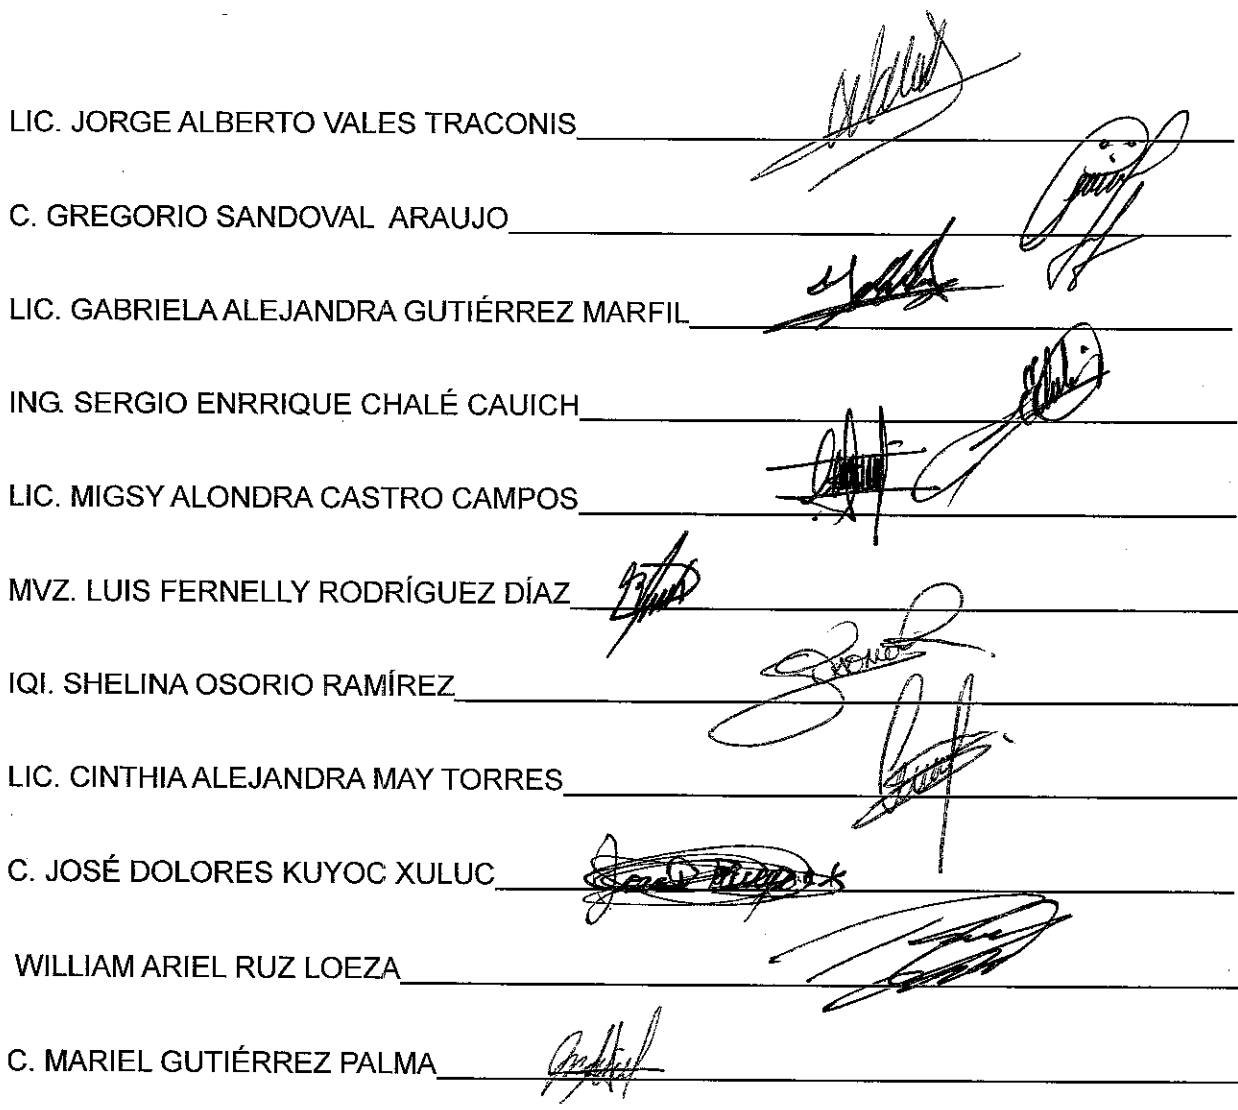 LIC. JORGE ALBERTO VALES TRACONIS
C. GREGORIO SANDOVAL ARAUJO
LIC. GABRIELA ALEJANDRA GUTIÉRREZ MARFIL
ING. SERGIO ENRRIQUE CHALÉ CAUICH
LIC. MIGSY ALONDRA CASTRO CAMPOS
MVZ. LUIS FERNELLY RODRÍGUEZ DÍAZ
IQI. SHELINA OSORIO RAMÍREZ
LIC. CINTHIA ALEJANDRA MAY TORRES
C. JOSÉ DOLORES KUYOC XULUC
WILLIAM ARIEL RUZ LOEZA
C. MARIEL GUTIÉRREZ PALMA